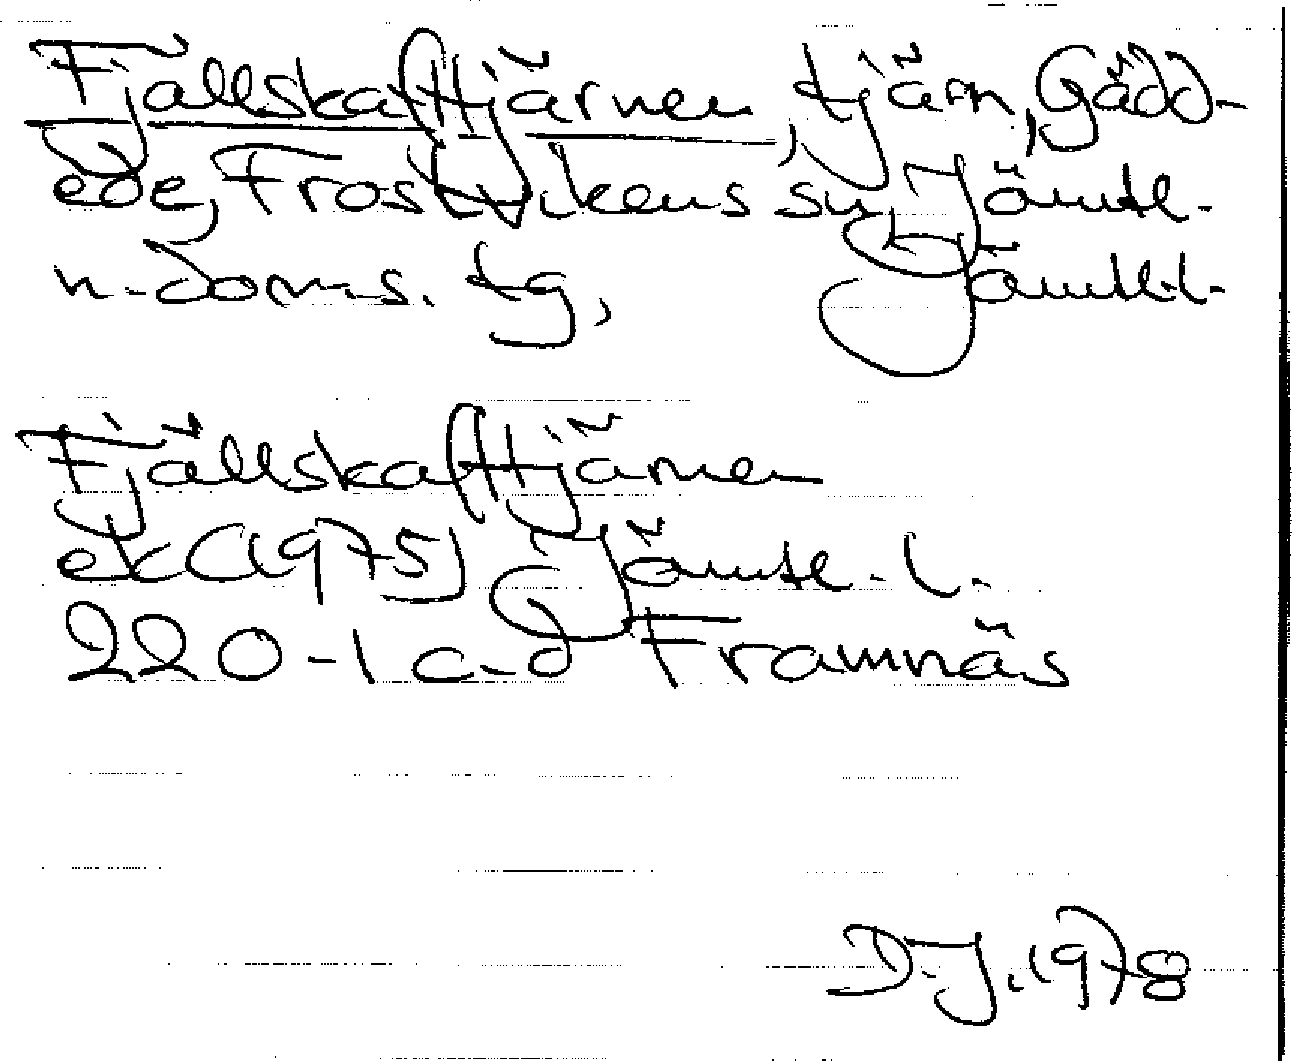 Fjällskafttjärnen, tjärn, Gädd-
ede, Frostvikens sn, Jämtl.
n. doms. tg, Jämtl.l.
Fjällskafttjärnen
ek (1975) Jämtl. l.
22O-1 c-d Framnäs
D.J. 1978